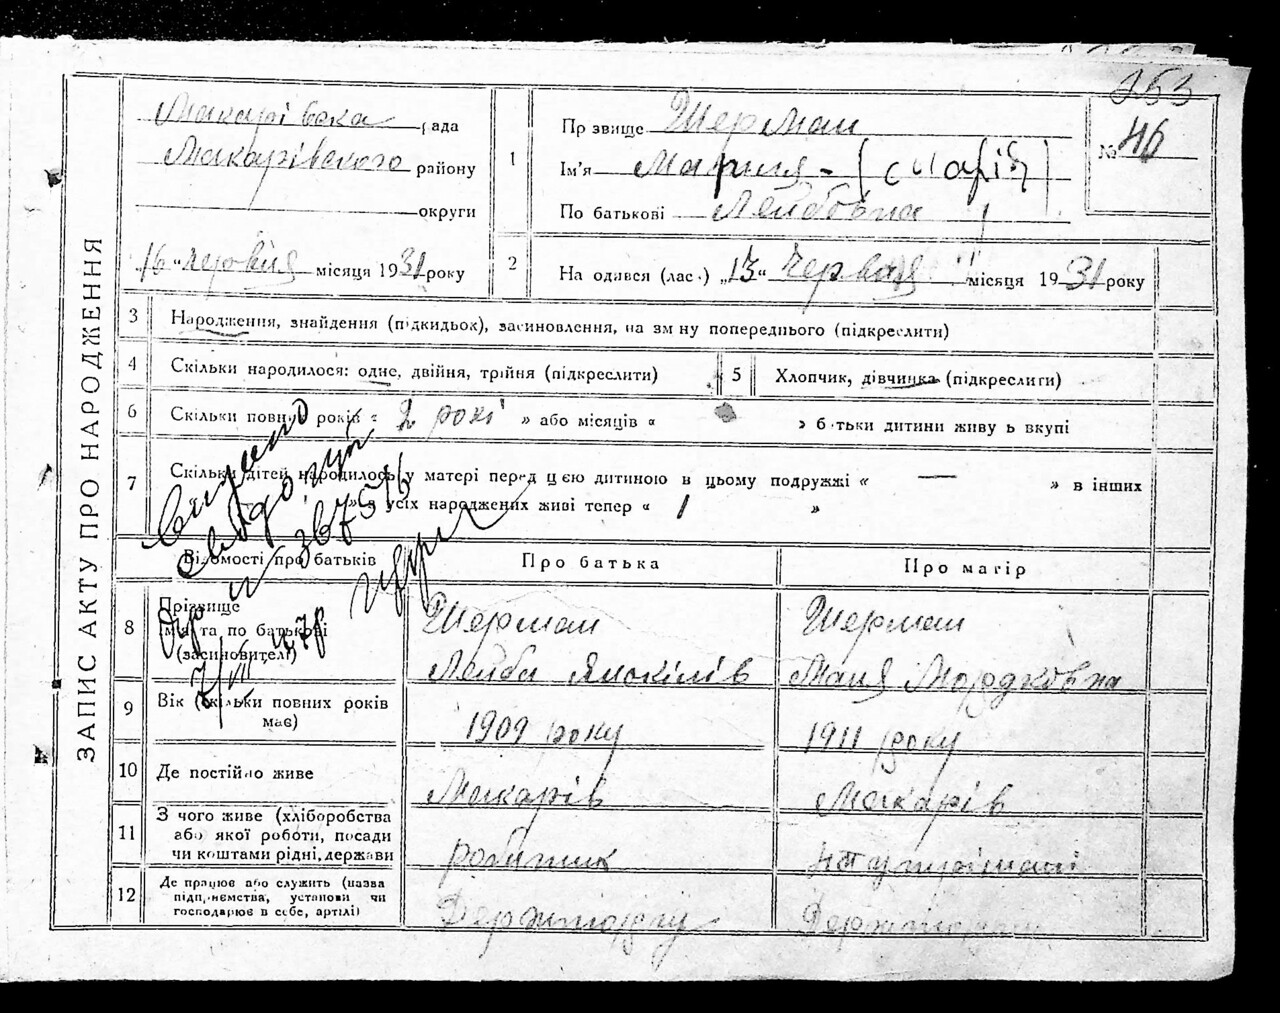 253
№ 46
ЗАПИС АКТУ ПРО НАРОДЖЕННЯ
Макарівська рада
Макарівського району
округи
„16“ червня місяця 1931 року
1
Прізвище Шерман
Ім'я Мария - (Марія)
По батькові Лейбовна
2
На одився (лас.) „13“ Червня місяця 1931 року
3 Народження, знайдення (підкидьок), засиновлення, на зм ну попереднього (підкреслити)
4 Скільки народилося: одне, двійня, трійня (підкреслити)
5 Хлопчик, дівчинка (підкреслиги)
6 Скільки повних років « 2 рокі » або місяців « » б тьки дитини живу ь вкупі
7 Скільки дітей народилось у матері перед цією дитиною в цьому подружжі « — » в інших
» з усіх народжених живі тепер « 1 »
Видано
свідоцтво
Відомості про батьків
Про батька
Про матір
8 Прізвище
Ім'я та по батькові
(засиновителі)
Шерман
Лейба
Шерман
Маня Мордковна
9 Вік (скільки повних років має)
1909 року
1911 року
10 Де постійно живе
Макарів
Макарів
11 З чого живе (хліборобства
або якої роботи, посади
чи коштами рідні, держави
робитник
на утриманні
12 Де працює або служить (назва
підп,иємства, установи чи
господарює в себе, артілі)
Держторгу
Держторгу